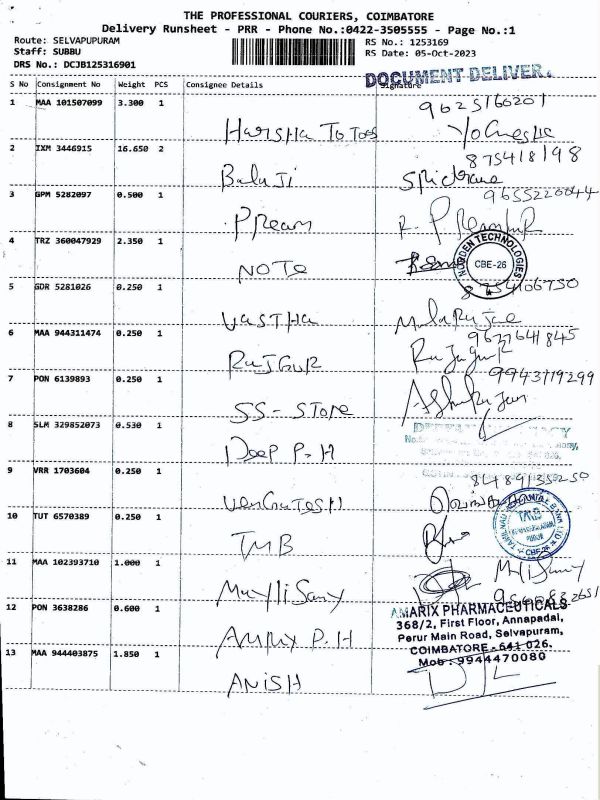 THE PROFESSIONAL COURIERS, COIMBATORE
Delivery Runsheet - PRR - Phone No.:0422-3505555 - Page No.:1
Route: SELVAPUPURAM
Staff: SUBBU
DRS No.: DCJB125316901
RS No.: 1253169
RS Date: 05-Oct-2023
DOCUMENT DELIVER
S No Consignment No Weight PCS Consignee Details Signature
1 MAA 101507099 3.300 1
9625166201
Harsha
2 IXM 3446915 16.650 2
875418198
Balaji
3 GPM 5282097 0.500 1
9655220044
Pream
4 TRZ 360047929 2.350 1
NOTE
NORDEN TECHNOLOGIES
CBE-26
5 GDR 5281026 0.250 1
8754106750
VASTHA
6 MAA 944311474 0.250 1
9677641845
RAJGUR
7 PON 6139893 0.250 1
9943719299
SS - STORE
8 SLM 329852073 0.530 1
Deep P.H
9 VRR 1703604 0.250 1
8489135250
10 TUT 6570389 0.250 1
TMB
TAMILNAD MERCANTILE BANK LTD
TMB
CBE-26
11 MAA 102393710 1.000 1
12 PON 3638286 0.600 1
P.H
AMARIX PHARMACEUTICALS
368/2, First Floor, Annapadai,
Perur Main Road, Selvapuram,
COIMBATORE - 641 026.
Mob: 9944470080
13 MAA 944403875 1.850 1
ANISH